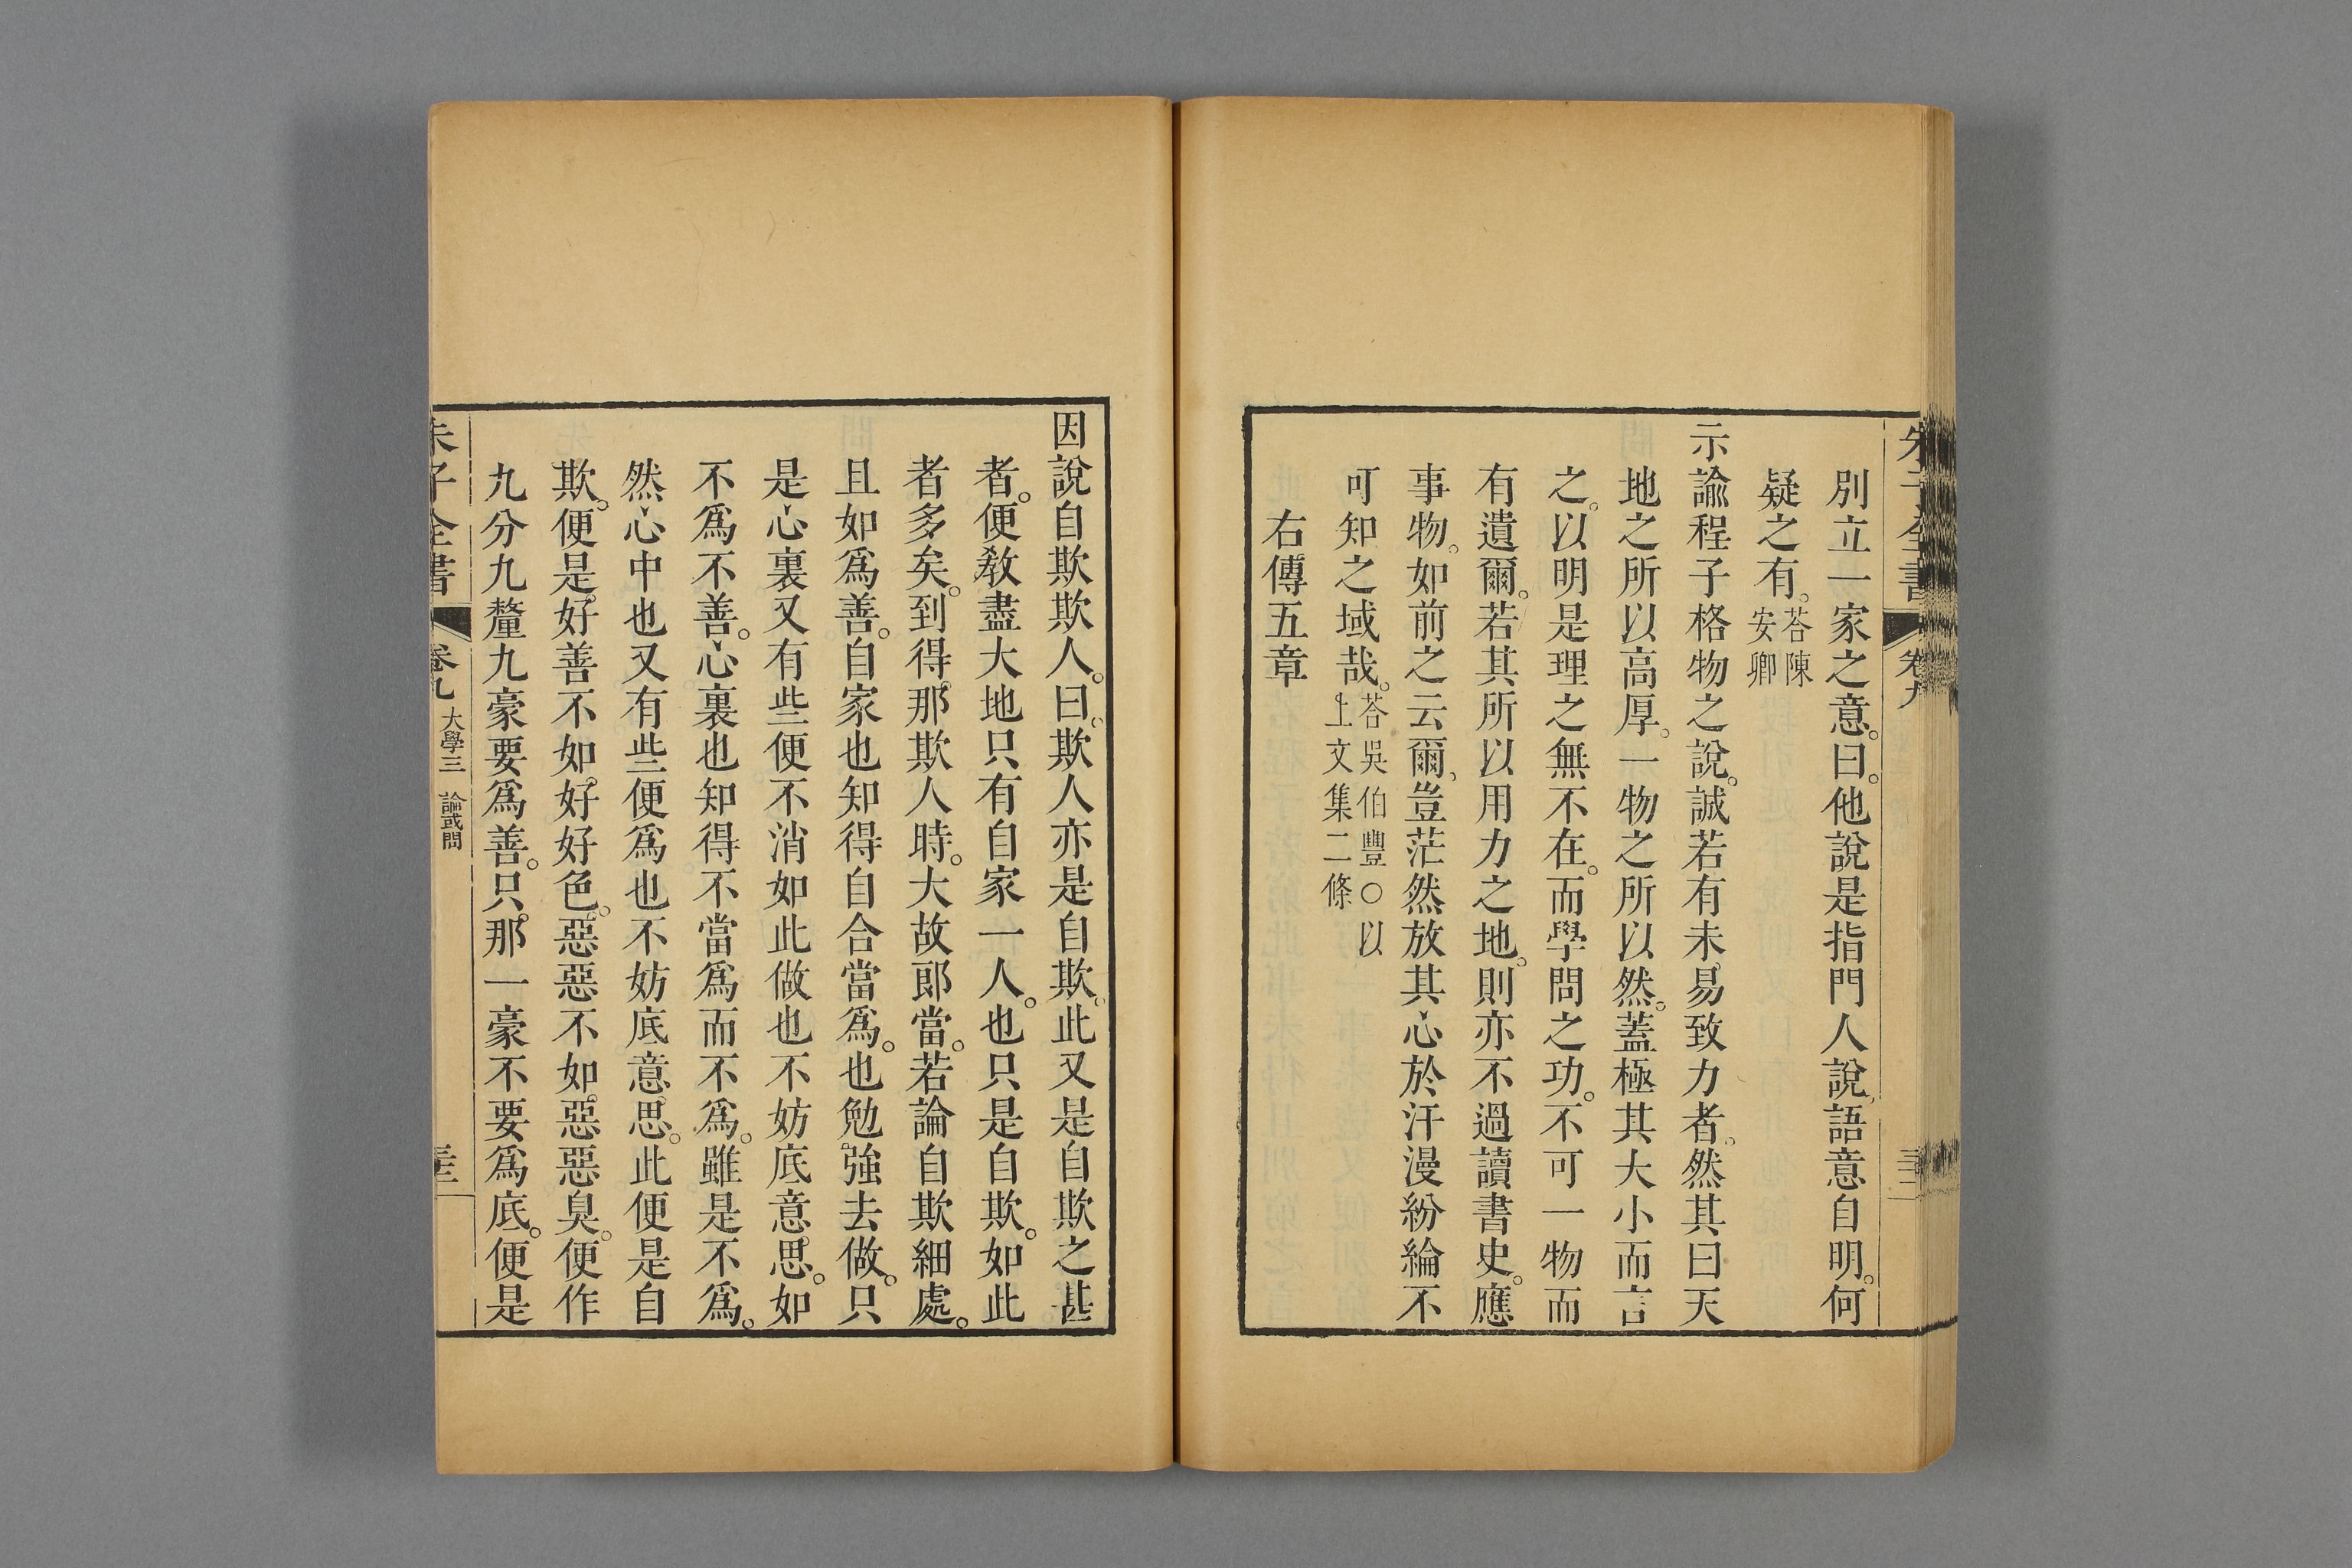 朱子全書 卷九
別立一家之意。曰。他說是指門人說語意自明。何
疑之有。荅陳安卿
示諭程子格物之說。誠若有未易致力者。然其曰天
地之所以高厚。一物之所以然。蓋極其大小而言
之。以明是理之無不在。而學問之功。不可一物而
有遺爾。若其所以用力之地。則亦不過讀書史。應
事物。如前之云爾。豈茫然放其心於汗漫紛綸不
可知之域哉。荅吳伯豐○以上文集二條
右傳五章
因說自欺欺人。曰。欺人亦是自欺。此又是自欺之甚
者。便敎盡大地只有自家一人。也只是自欺。如此
者多矣。到得那欺人時。大故郎當。若論自欺細處。
且如爲善。自家也知得自合當爲。也勉強去做。只
是心裏又有些便不消如此做也不妨底意思。如
不爲不善。心裏也知得不當爲而不爲。雖是不爲。
然心中也又有些便爲也不妨底意思。此便是自
欺。便是好善不如好好色。惡惡不如惡惡臭。便作
九分九釐九豪要爲善。只那一豪不要爲底。便是
朱子全書 卷九 大學三 論或問